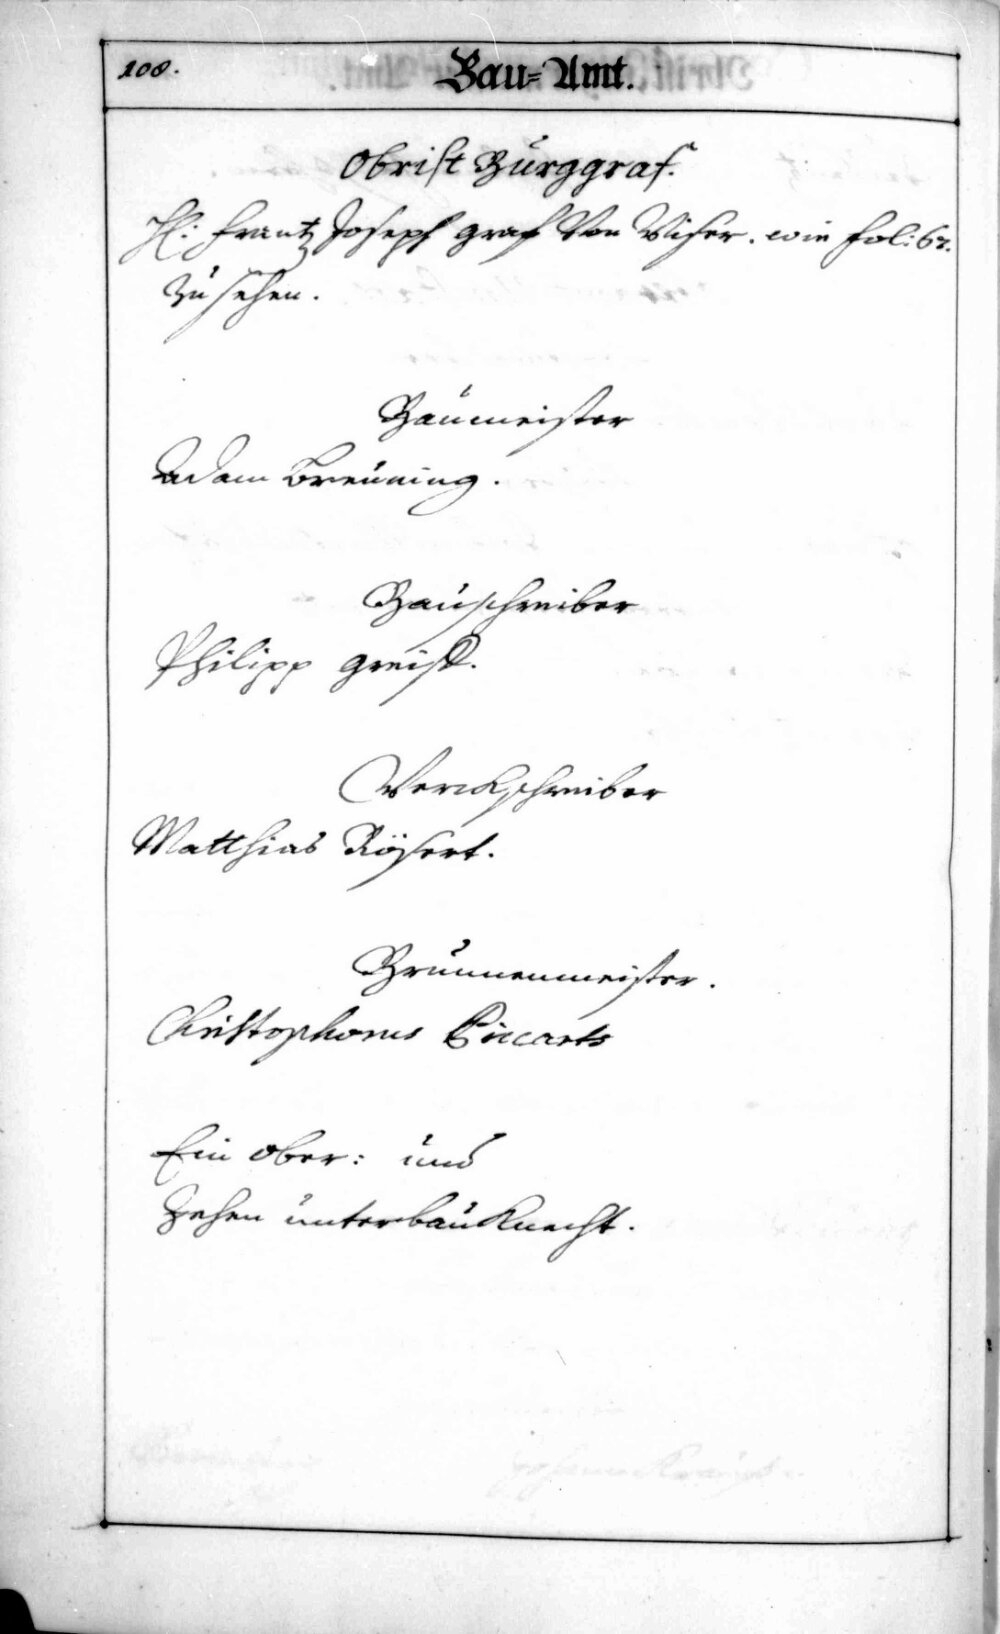 108.
Bau=Amt.
Obrist Burggraf.
H: Frantz Joseph graf Von Wiser. wie fol: 62.
zu sehen.
Baumeister
Adam Breuning.
Bauschreiber
Philipp
Werckschreiber
Matthias
Brunnenmeister.
Christophorus
Ein ober: und
Zehen unterbauknecht.